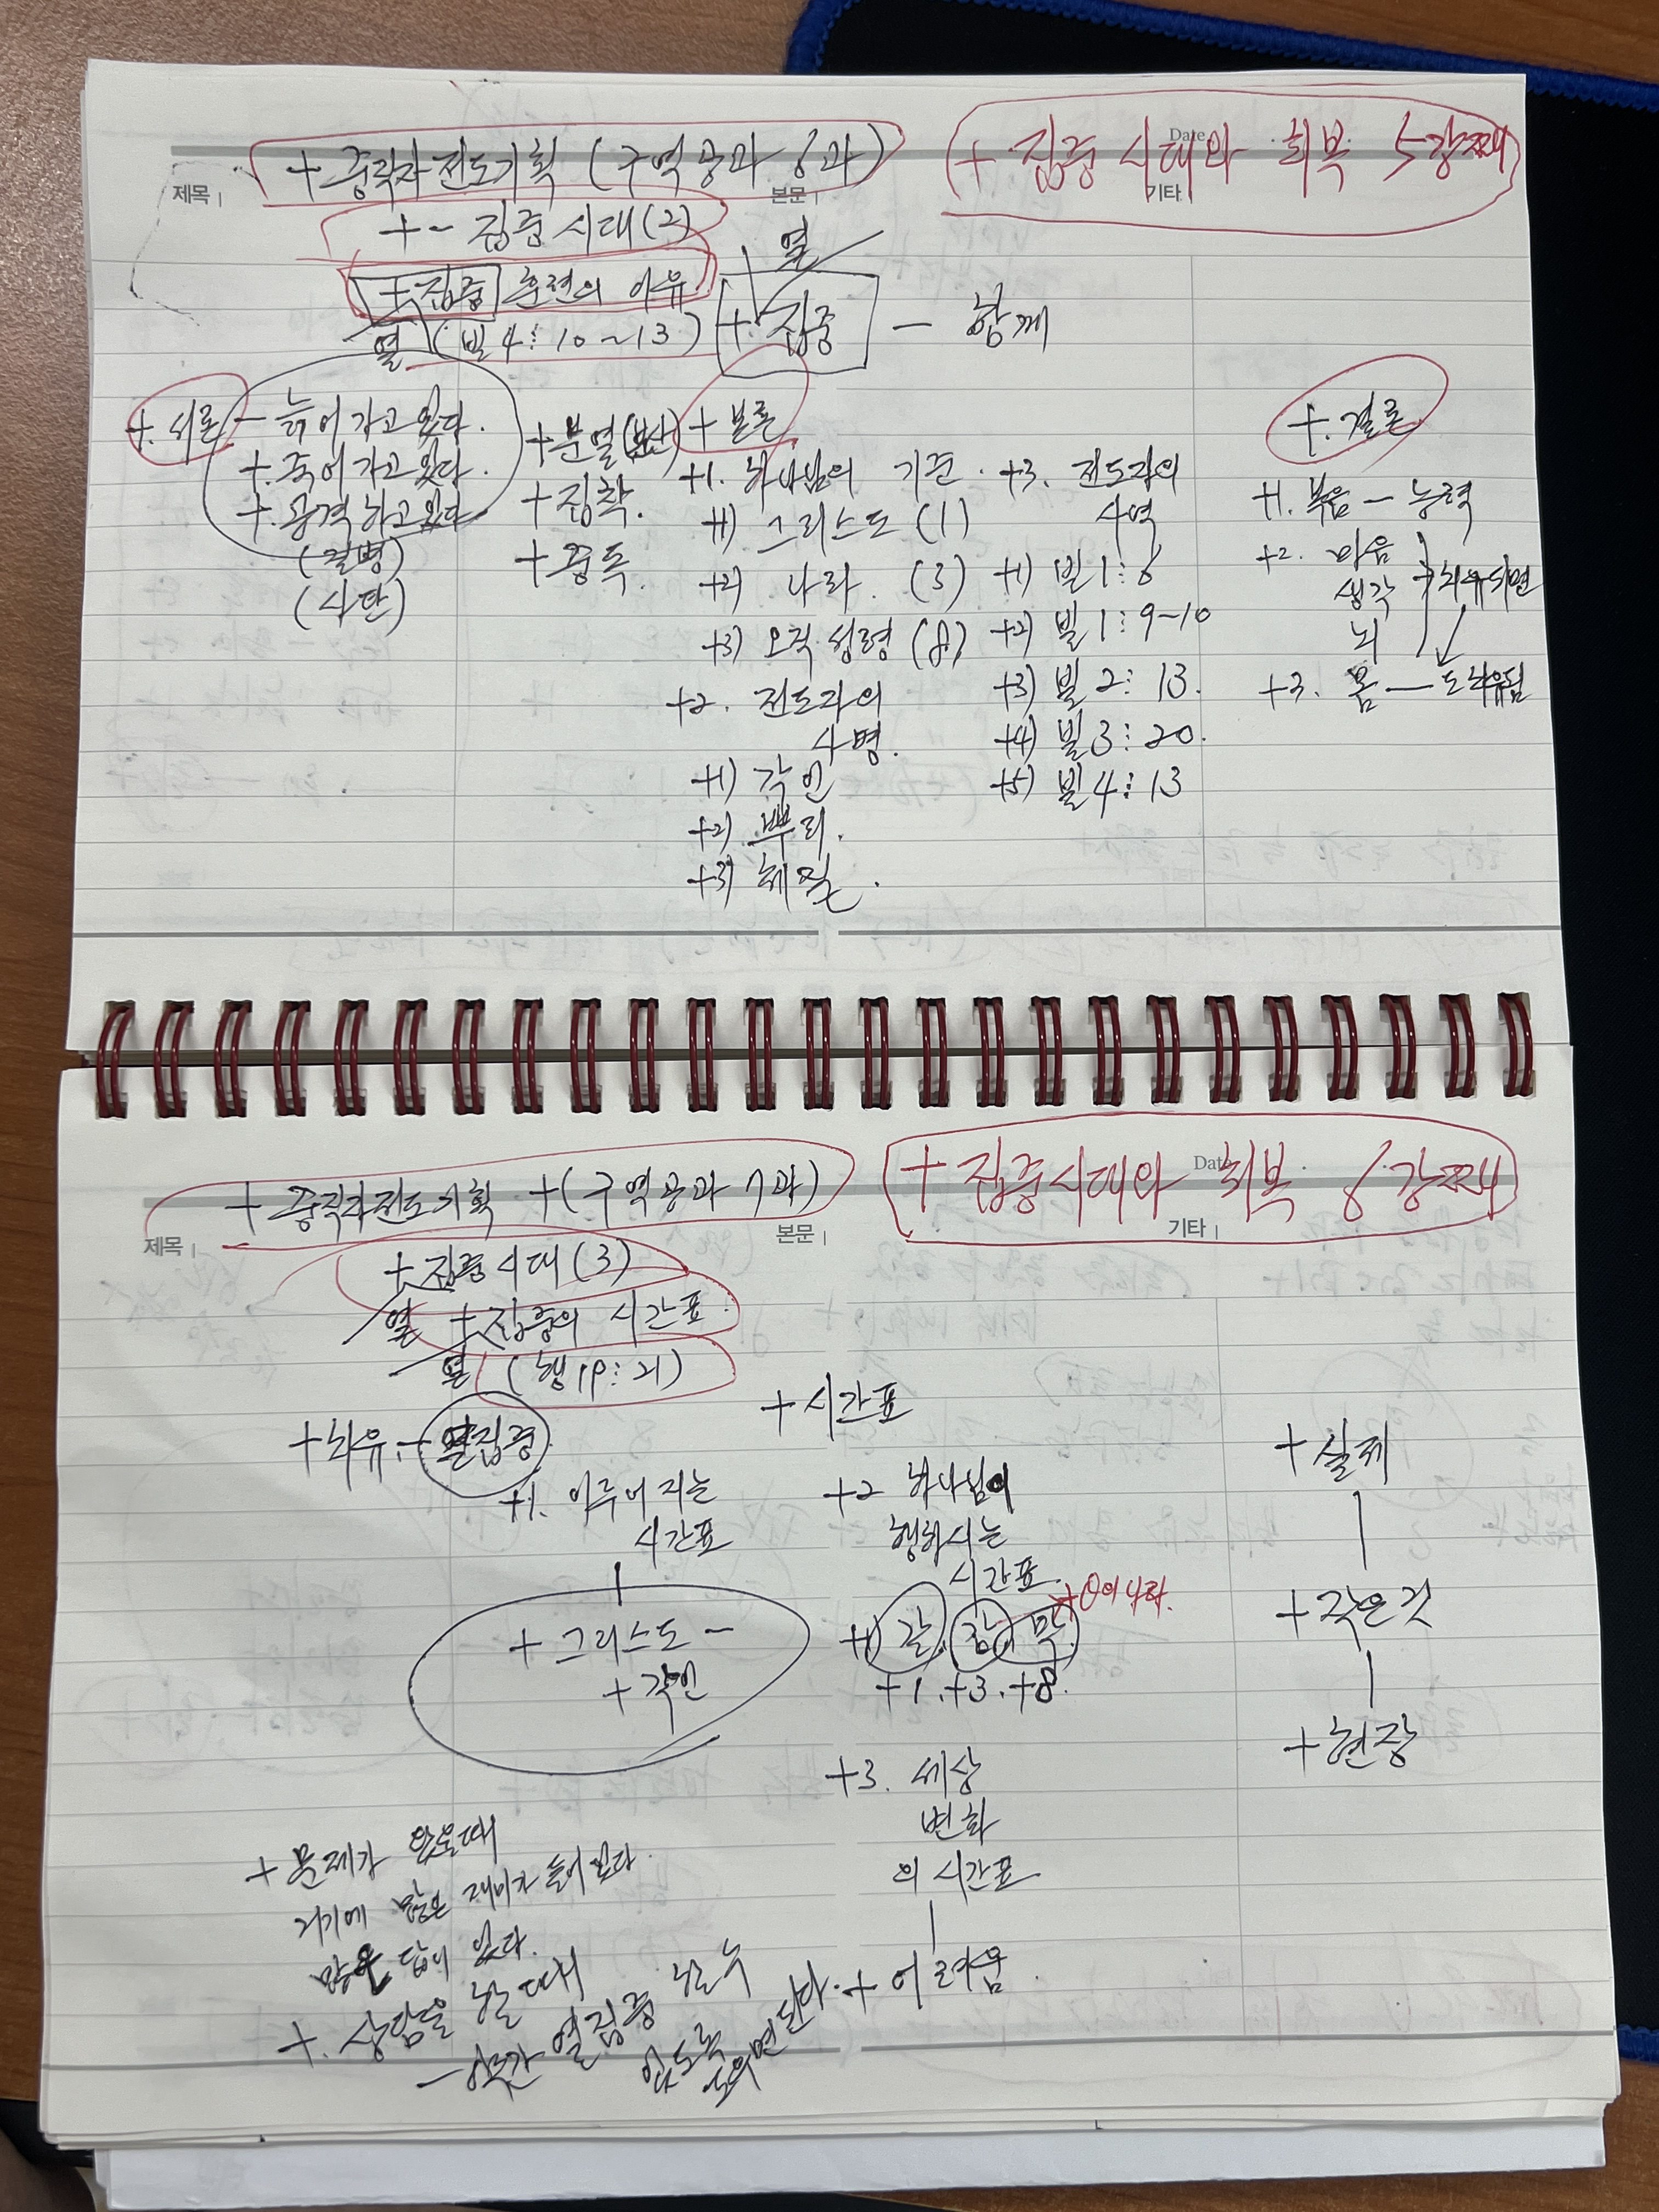 Date
+ 중직자 전도기획 (구역공과 6과)
+ 집중시대와 회복 5강째
제목
본문
기타
+ - 집중시대(2)
+ 집중 훈련의 이유
열 (빌 4:10~13)
열
+ 집중 - 함께
+. 서론 - 늙어가고 있다.
+. 죽어가고 있다.
+. 공격하고 있다.
(질병)
(사단)
+ 분열(분산)
+ 집착.
+ 중독.
+ 본론
+1. 하나님의 기준.
+1) 그리스도 (1)
+2) 나라. (3)
+3) 오직 성령 (8)
+2. 전도자의
사명.
+1) 각인
+2) 뿌리.
+3) 체질.
+3. 전도자의
사역
+1) 빌 1:6
+2) 빌 1:9~10
+3) 빌 2:13.
+4) 빌 3:20.
+5) 빌 4:13
+. 결론
+1. 복음 - 능력
+2. 마음
생각 + 치유되면
뇌
+3. 몸 - 도 치유됨
Date
+ 중직자 전도기획 +(구역공과 7과)
+ 집중시대와 회복 6강째
제목
본문
기타
+ 집중시대(3)
열 + 집중의 시간표.
열 (행 19:21)
+ 치유. + 열집중
+1. 이루어지는
시간표
+ 그리스도 -
+ 각인
+ 시간표
+2 하나님이
행하시는
시간표.
+1) 갈. 감. 막.
+1. +3. +8.
+3. 세상
변화
의 시간표
+ 어려움.
+ 실제
+ 작은 것
+ 현장
+ 문제가 있을때
거기에 많은 재미가 들어 있다.
많은 답이 있다.
+. 상담을 할 때
열집중 할 수
있도록
도우면 된다.